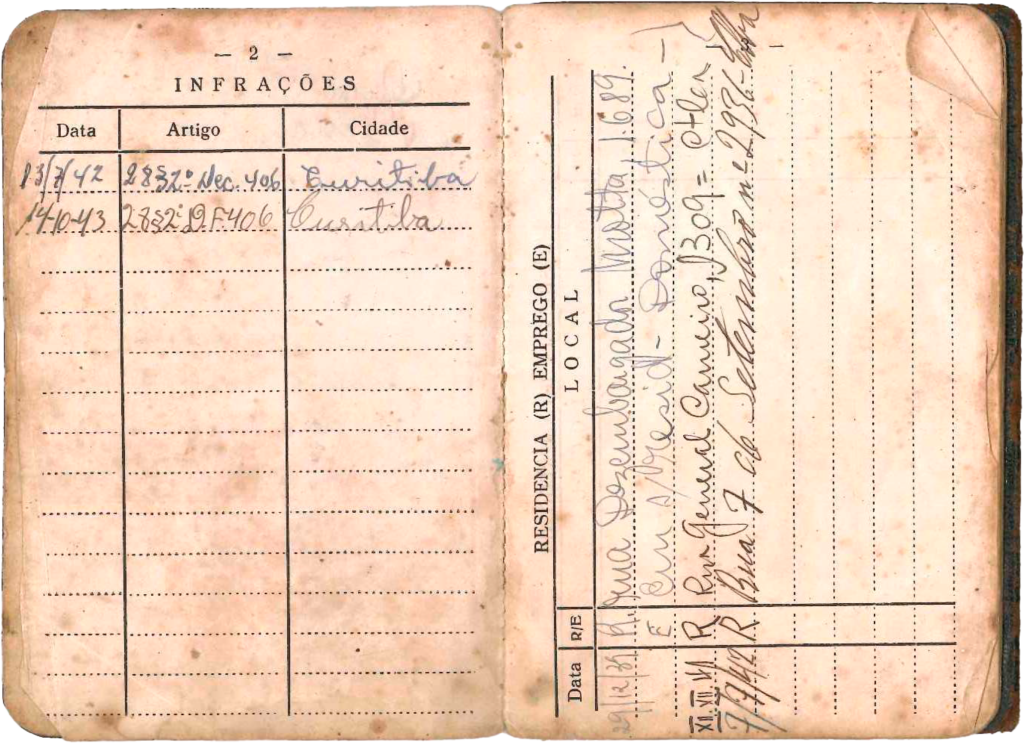 — 2 —
INFRAÇÕES
Data Artigo Cidade
13/7/42 28§2º Dec. 406 Curitiba
14-10-43 28§2º D.F 406 Curitiba
RESIDENCIA (R) EMPREGO (E)
Data R/E LOCAL
29/12/39 R. Rua Dezembargador Motta, 1.689.
E Em s/ Resid - Doméstica -
R Rua General Carneiro, 1309 =
7/7/42 R Rua 7 de Setembro nº 2936-